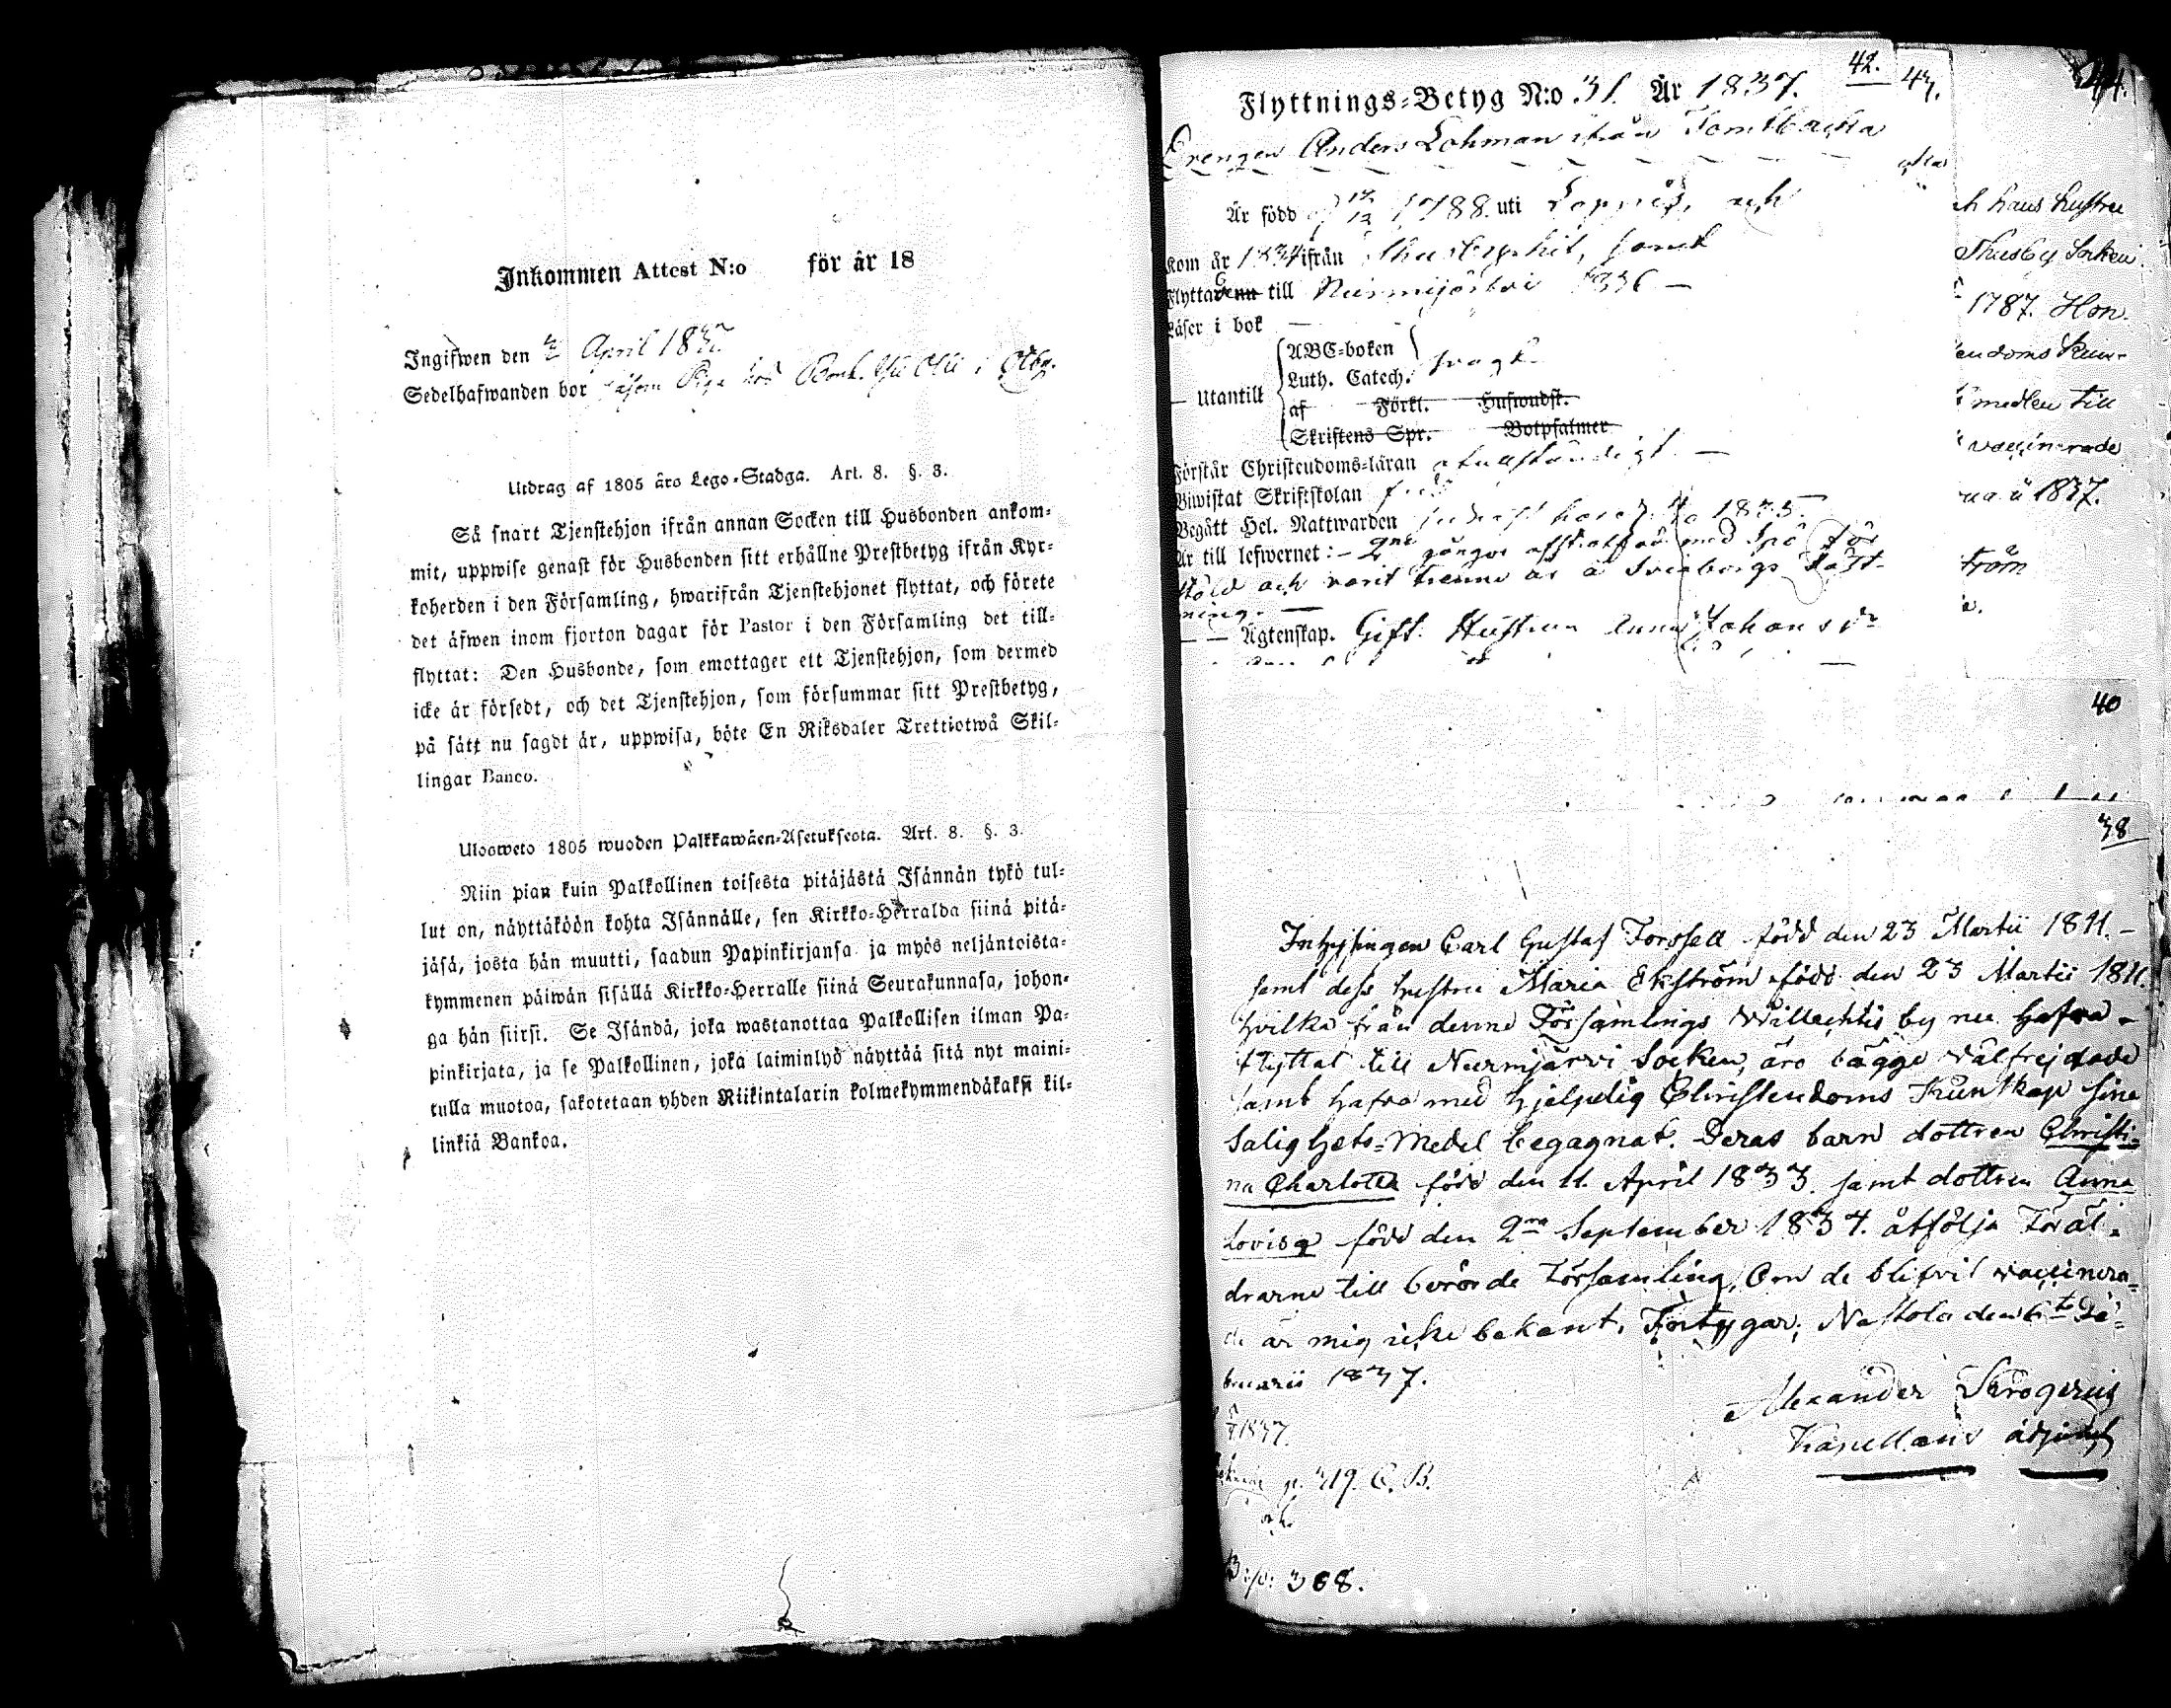 Inkommen Attest N:o för år 18
Ingifwen den April 183
Sedelhafwanden bor såsom Piga hos
Utdrag af 1805 års Lego-Stadga. Art. 8. §. 3.
Så snart Tjenstehjon ifrån annan Socken till Husbonden ankom-
mit, uppwise genast för Husbonden sitt erhållne Prestbetyg ifrån Kyr-
koherden i den Församling, hwarifrån Tjenstehjonet flyttat, och förete
det äfwen inom fjorton dagar för Pastor i den Församling det till-
flyttat: Den Husbonde, som emottager ett Tjenstehjon, som dermed
icke är försedt, och det Tjenstehjon, som försummar sitt Prestbetyg,
på sätt nu sagdt är, uppwisa, böte En Riksdaler Trettiotwå Skil-
lingar Banco.
Ulosweto 1805 wuoden Palkkawäen-Asetuksesta. Art. 8. §. 3.
Niin pian kuin Palkollinen toisesta pitäjästä Isännän tykö tul-
lut on, näyttäköön kohta Isännälle, sen Kirkko-Herralda siinä pitä-
jäsä, josta hän muutti, saadun Papinkirjansa ja myös neljäntoista-
kymmenen päiwän sisällä Kirkko-Herralle siinä Seurakunnasa, johon-
ga hän siirsi. Se Isändä, joka wastanottaa Palkollisen ilman Pa-
pinkirjata, ja se Palkollinen, joka laiminlyö näyttää sitä nyt maini-
tulla muotoa, sakotetaan yhden Riikintalarin kolmekymmendäkaksi kil-
linkiä Bankoa.
42.
43.
44.
Flyttnings-Betyg N:o 31. År 1837.
Drengen Anders Lohman ifrån Tomtbacka
Är född 1788. uti Loppis, och
kom år 1834 ifrån Thusby hit, samt
Flyttade till Nurmijärvi 1836 —
Läser i bok —
— Utantill
ABC-boken
Luth. Catech. svagt.
af Förkl. Hufwudst.
Skriftens Spr. Botpsalmer
Förstår Christendoms-läran ofullständigt. —
Biwistat Skriftskolan
Begått Hel. Nattwarden 1835.
Är till lefwernet: — 2ne gångor afstraffad med Spö för
stöld och varit trenne år å Sveaborgs Fäst-
ning. —
— — Ägtenskap. Gift. Hustrun Anna Johansdr
h hans hustru
Thusby Socken
1787. Hon
endoms Kun-
medlen till
vaccinerade
1837.
ström
40
38
Inhysingen Carl Gustaf Forssell född den 23 Martii 1811. —
samt dess hustru Maria Ekström född den 23 Martii 1811.
hvilka från denne Församlings Willechtis by nu hafva
flyttat till Nurmjärvi Socken, äro bägge välfrejdade
samt hafva med hjelpelig Christendoms Kunskap sina
Salighets-Medel begagnat. Deras barn dottren Christi-
na Charlotta född den 11. April 1833. samt dottren Anna
Lovisa född den 2ra September 1834. åtfölja Föräl-
drarne till berörde Församling. Om de blifvit vaccinera-
de är mig icke bekant, Förtygar; Nastola den 6te Fe-
bruarii 1837.
Alexander Skrogerus
Kapellans adjunct
1837.
p. 319. C. B.
och
308.